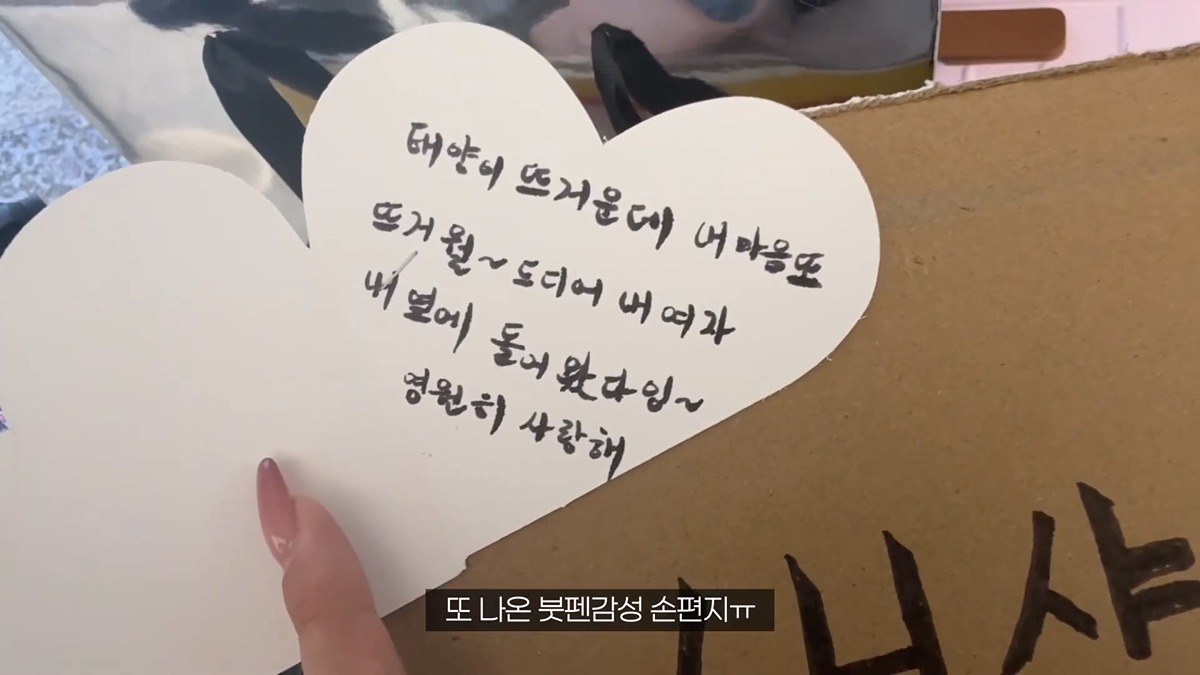 태양이 뜨거운데 내 마음또
뜨거 월~ 도디어 내 여자
내 옆에 돌아왔다잉~
영원히 사랑해
또 나온 붓펜감성 손편지ㅠ